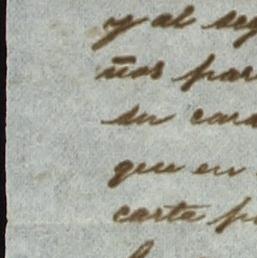 y al seg
ños par
su cara
que en
carte pu